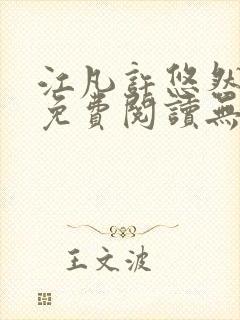 江凡許悠然
免費閱讀無
王文波